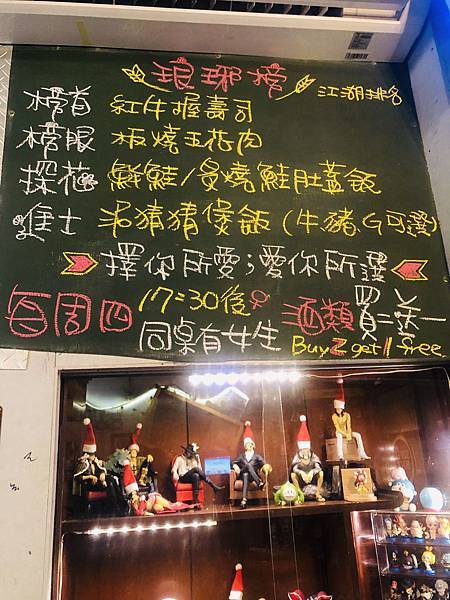 琅琊榜 江湖排名
榜首 紅牛握壽司
榜眼 板燒五花肉
探花 鮮鮭/炙燒鮭肚蓋飯
進士 呆猜猜煲飯(牛豬G可選)
擇你所愛;愛你所選
每周四 17:30後♀ 同桌有女生
酒類 買二送一
Buy 2 get 1 free